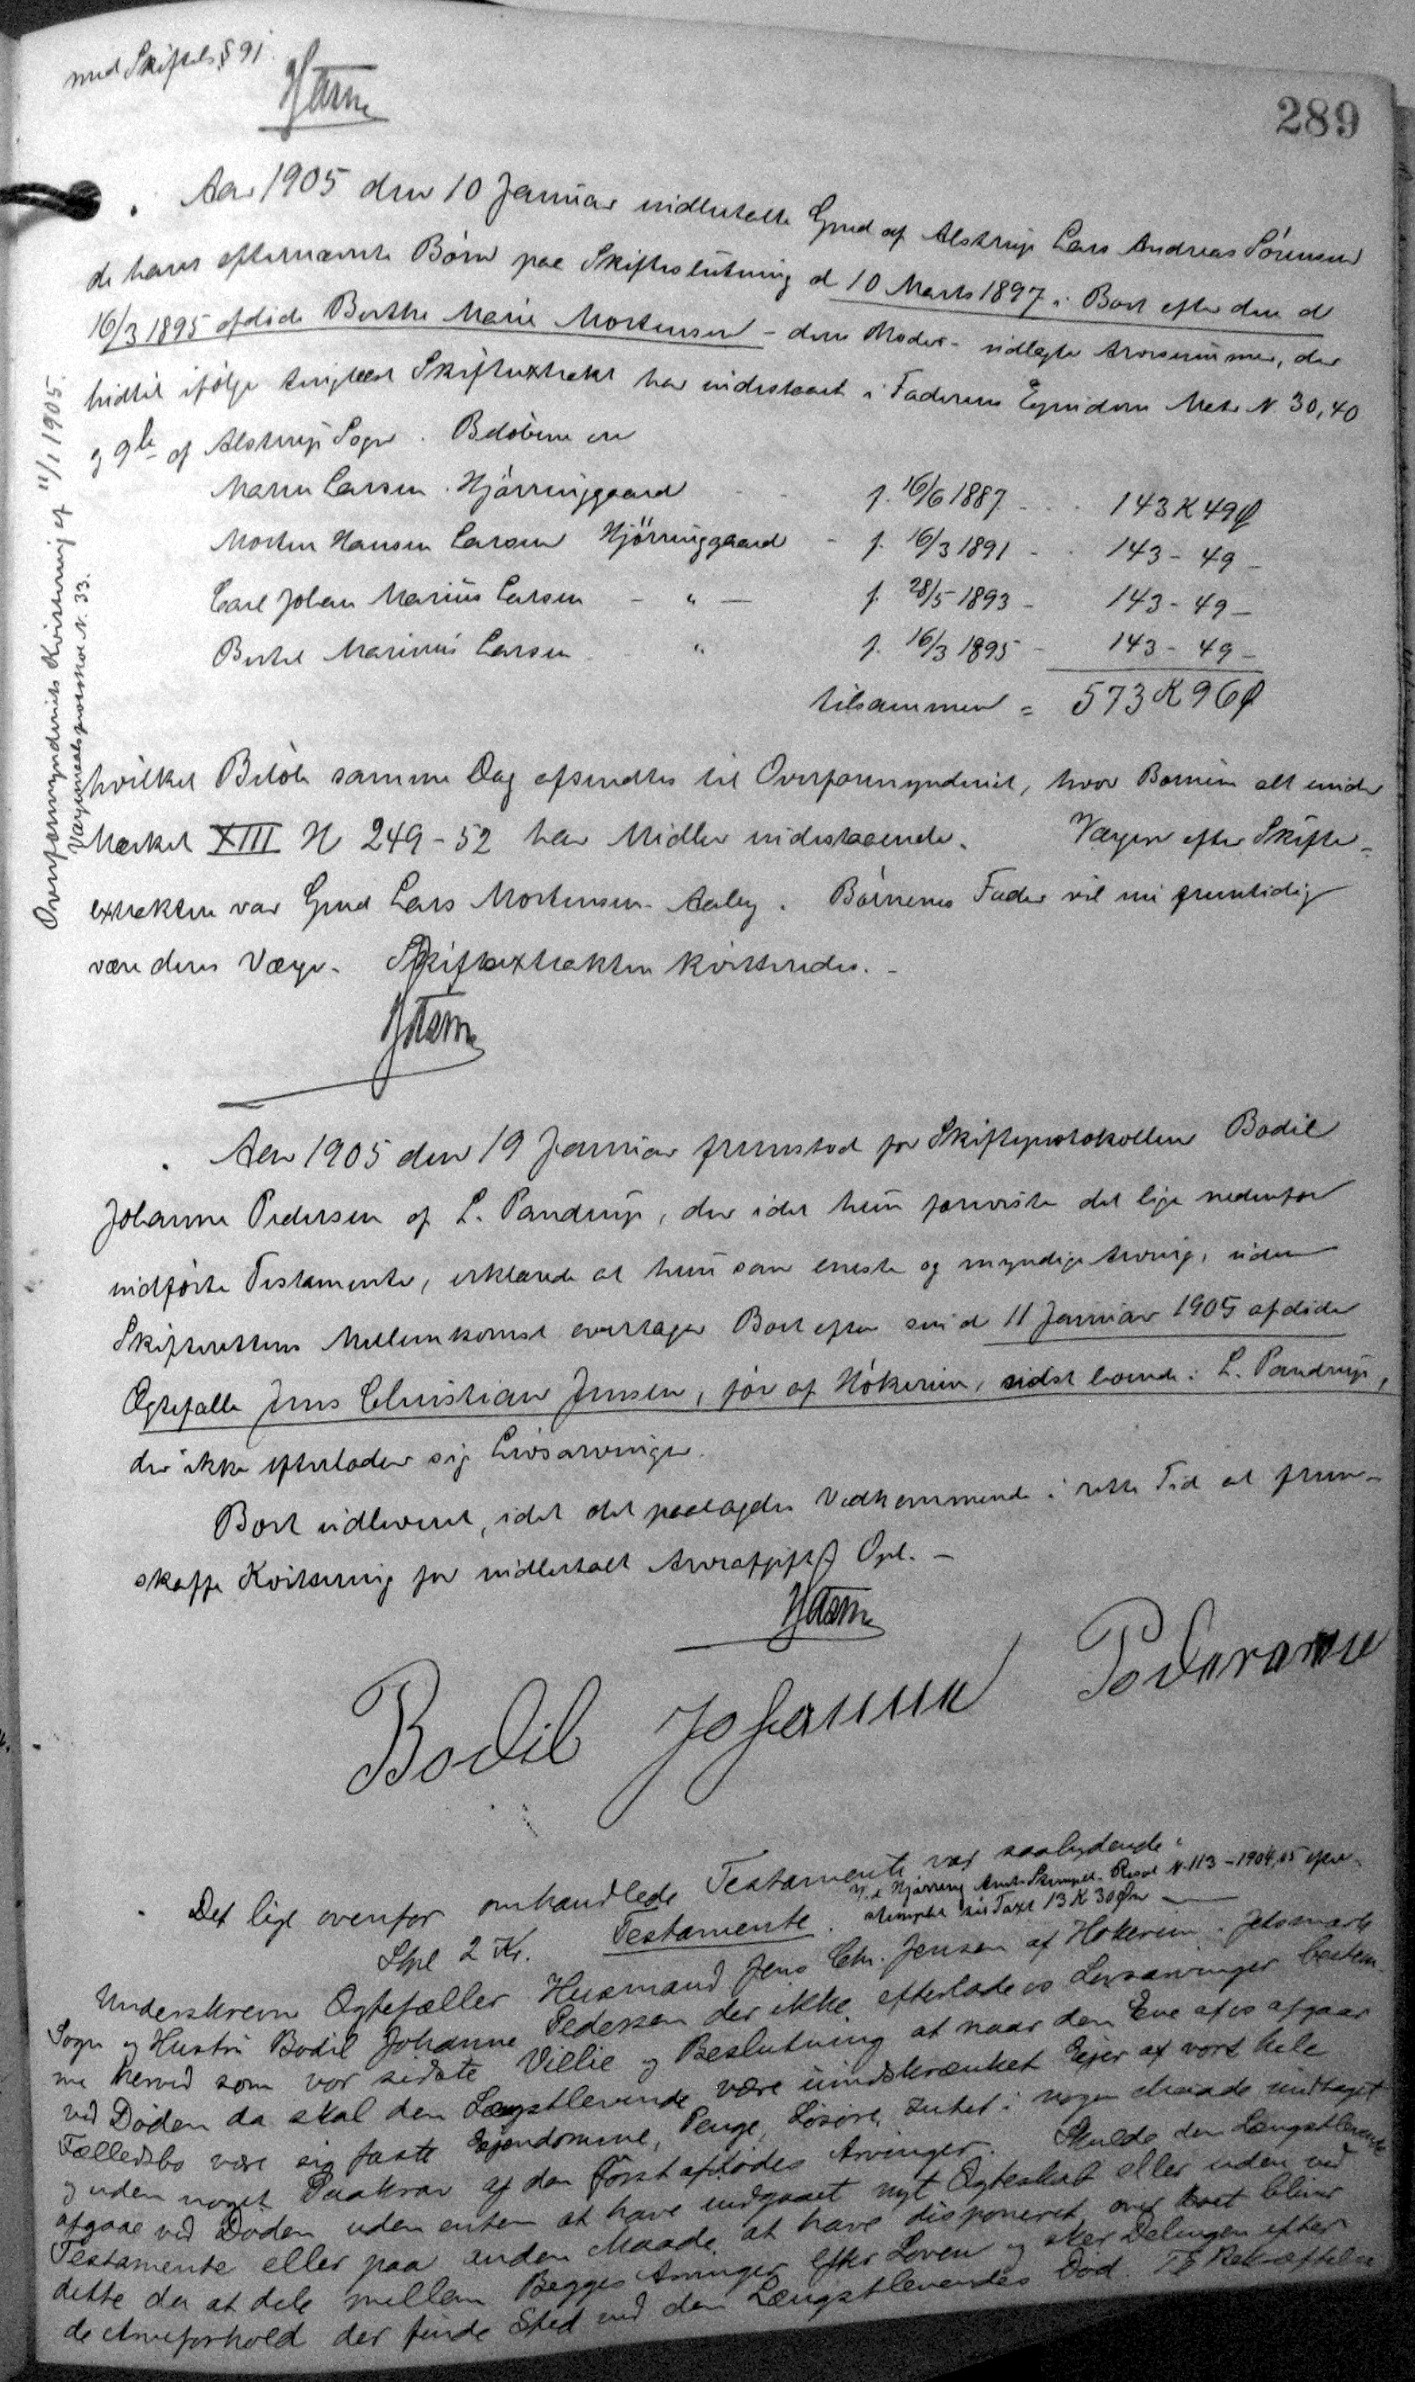 med Skiftels § 91.
289
Aar 1905 den 10 Januar indbetalte Gmd af Alstrup Lars Andreas Sørensen
de hans efternævnte Børn paa Skifteslutning d 10 Marts 1897 i Boet efter den d
16/3 1895 afdøde Berthe Marie Mortensen - deres Moder - udlagte Arvesummer, der
hidtil ifølge tinglæst Skifteextrakt har indestaaet i Faderens Ejendom Matr N. 30, 40
og 9b af Alstrup Sogn. Beløbene ere
Maren Larsen. Hjørringgaard - - f. 16/6 1887 - - - 143 K 49 Ø
Morten Hansen Larsen Hjørringgaard - f. 16/3 1891 - - 143 - 49 -
Carl Johan Marius Larsen - " - f. 28/5 1893 - 143 - 49 -
Bertel Marinus Larsen - " f. 16/3 1895 - 143 - 49 -
tilsammen = 573 K 96 Ø
hvilket Beløb samme Dag afsendtes til Overformynderiet, hvor Børnene alt under
Mærket XIII H 249 - 52 har Midler indestaaende. Værgen efter Skifte-
extrakten var Gmd Lars Mortensen Aaby. Børnenes Fader vil nu fremtidig
være deres Værge. Skifteextrakten kvitteredes. -
Overformynderiets Kvittering af 11/1 1905
Værgemaalsprotokol N. 33.
Aar 1905 den 19 Januar fremstod for Skifteprotokollen Bodil
Johanne Pedersen af L. Pandrup, der idet hun foreviste det lige nedenfor
indførte Testamente, erklærede at hun som eneste og myndige Arving, uden
Skifterettens Mellemkomst overtager Boet efter sin d 11 Januar 1905 afdøde
Ægtefælle Jens Christian Jensen, før af Hökerim, sidst boende i L. Pandrup,
der ikke efterlader sig Livsarvinger.
Boet udleveret, idet det paalagdes Vedkommende i rette Tid at frem-
skaffe Kvittering for indbetalt Arveafgift Opl. -
Bodil Johanne Pedersen
Det lige ovenfor omhandlede Testamente var saalydende:
V. d Hjørring Amts Stempel. Prot N. 113 - 1904,05 efter-
Stpl 2 Kr. Testamente. stemplet til Taxt 13 K 30 Øre
Underskrevne Ægtefæller Husmand Jens Chr. Jensen af Hökerim. Jetsmark
Sogn og Hustru Bodil Johanne Pedersen der ikke efterlade os Livsarvinger bestem-
me herved som vor sidste Villie og Beslutning at naar den Ene af os afgaar
ved Døden da skal den Længstlevende være uindskrænket Ejer af vort hele
Fælledsbo være sig faste Ejendomme, Penge, Løsøre, Intet i nogen Maade undtaget
og uden noget Paakrav af den Førstafdødes Arvinger. Skulde den Længstlevende
afgaae ved Døden uden enten at have indgaaet nyt Ægteskab eller uden ved
Testamente eller paa anden Maade at have disponeret over Boet bliver
dette da at dele mellem Begges Arvinger efter Loven og sker Delingen efter
de Arveforhold der finde Sted ved den Længstlevendes Død. Til Bekræftelse